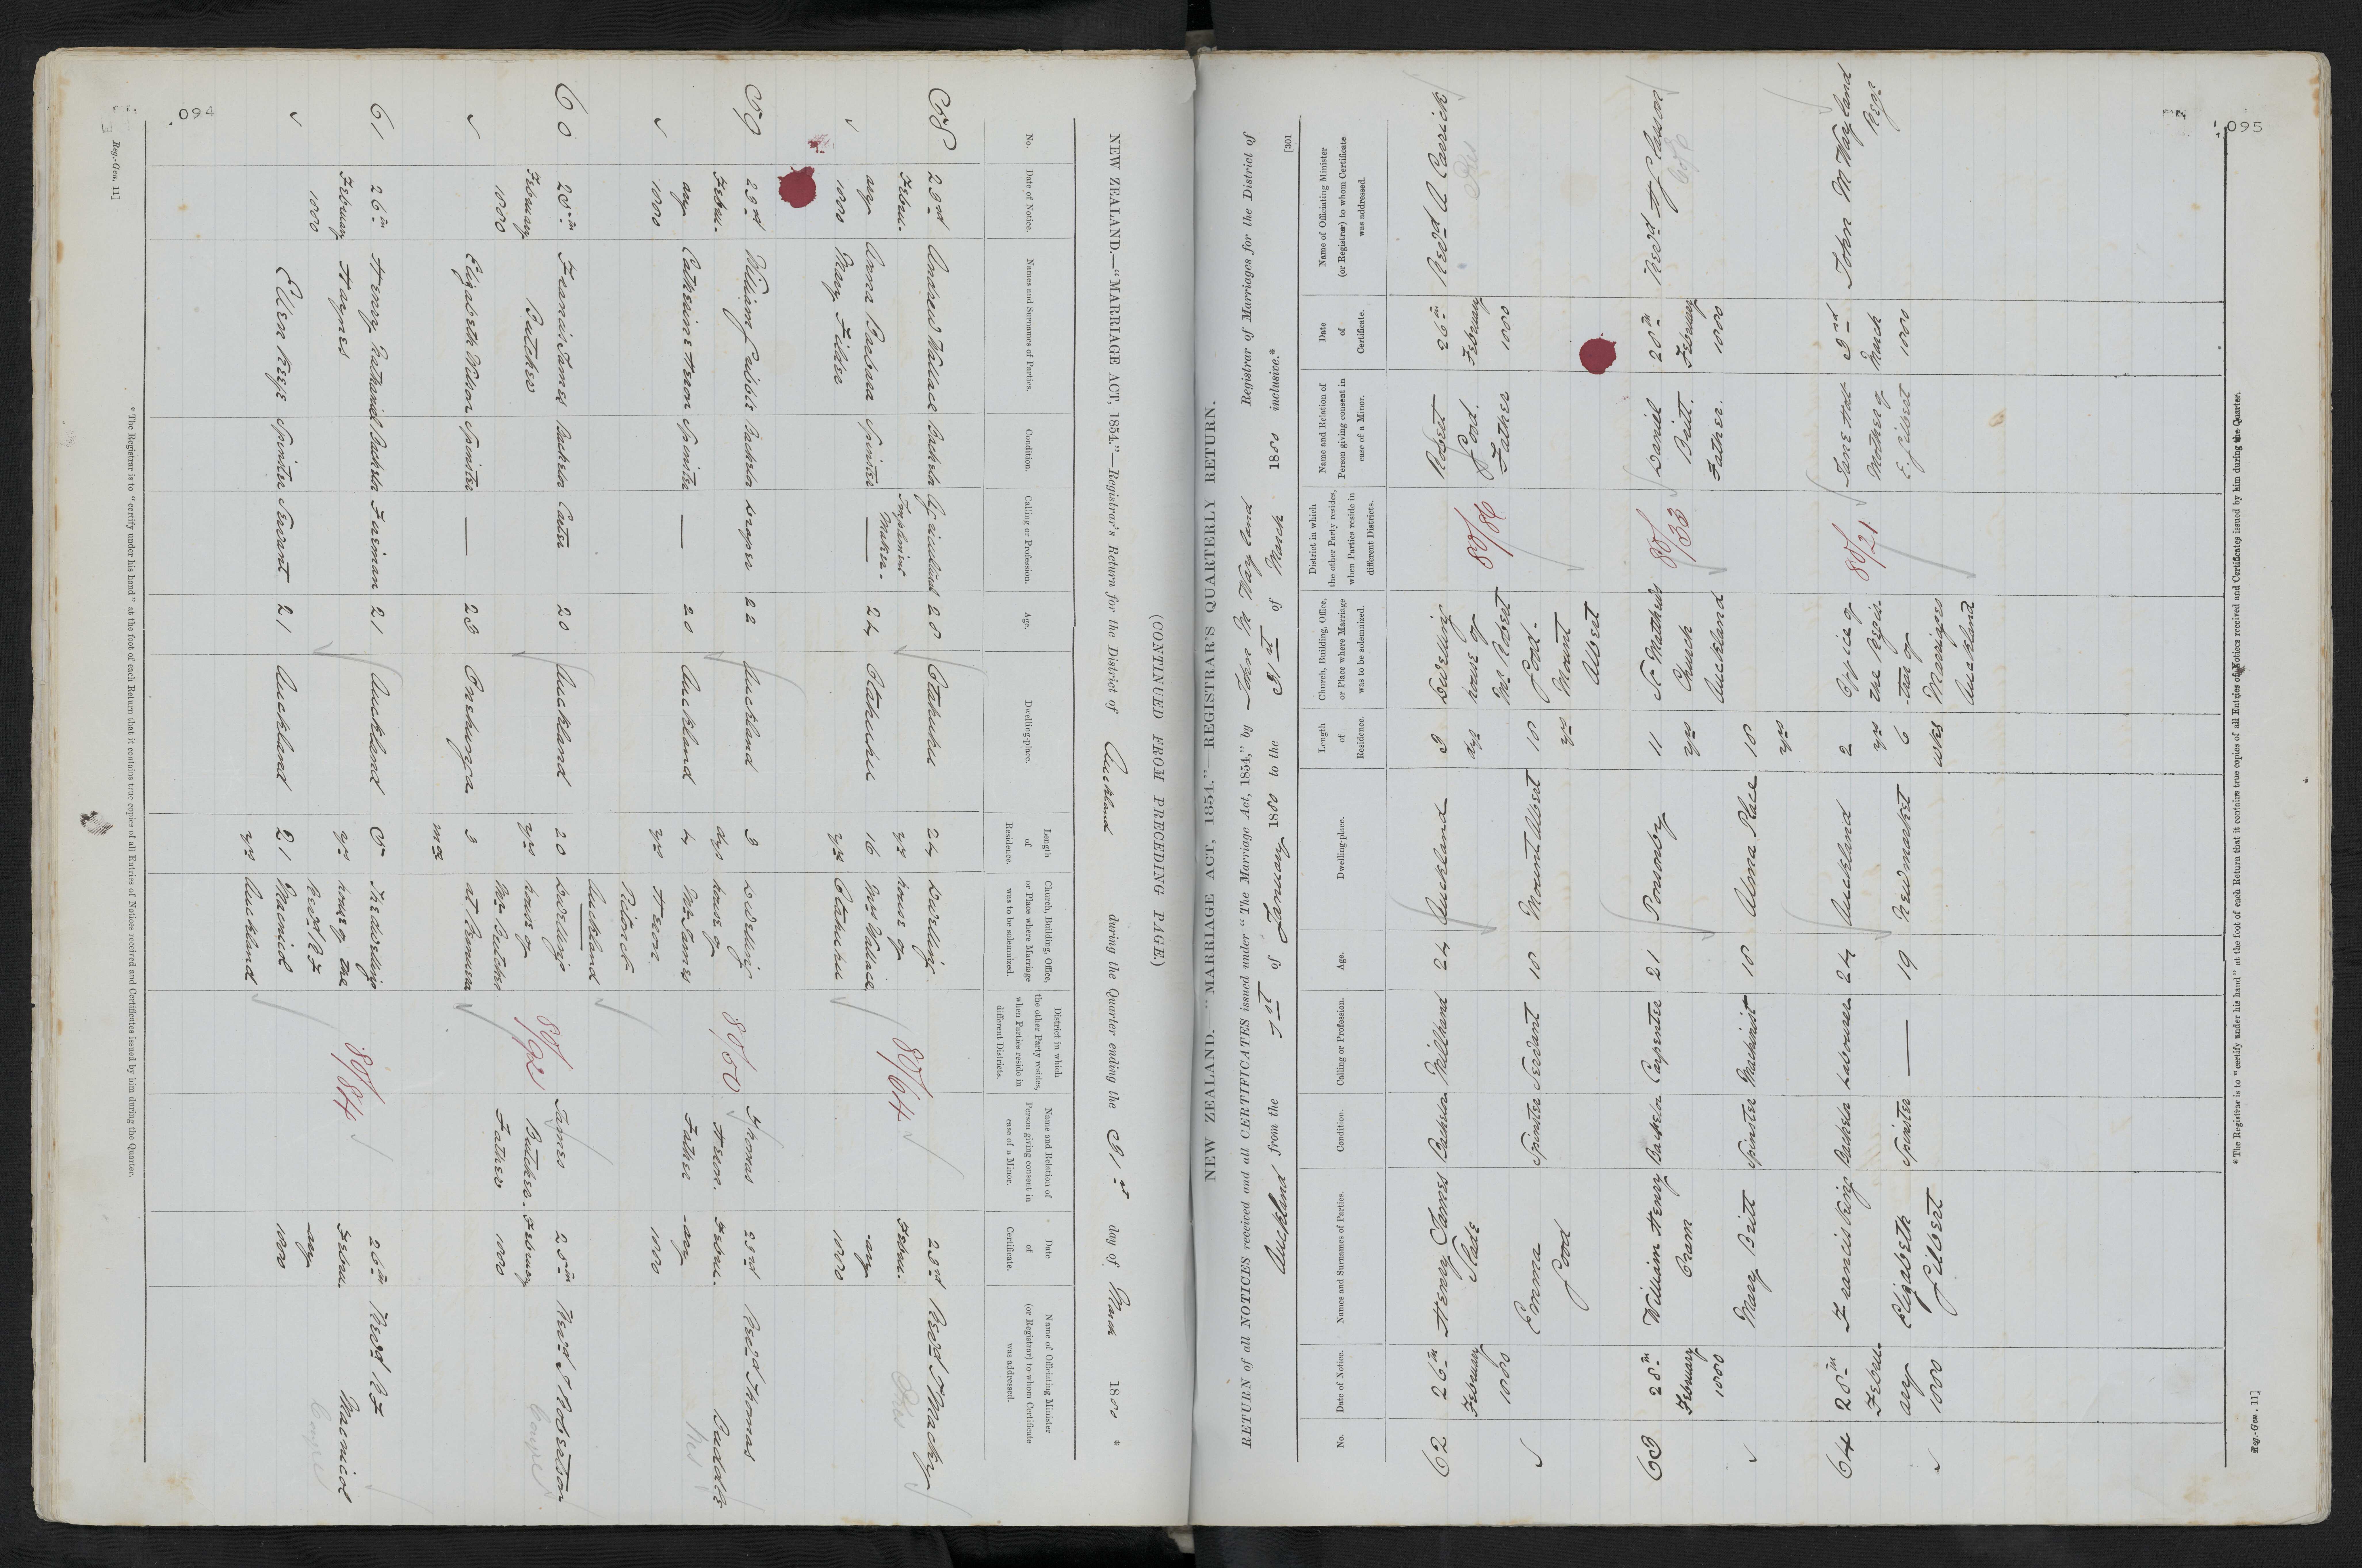 094
(CONTINUED FROM PRECEDING PAGE.)
NEW ZEALAND.—"MARRIAGE ACT, 1854."—Registrar's Return for the District of Auckland during the Quarter ending the 31st day of March 1880 *
No.
Date of Notice.
Names and Surnames of Parties.
Condition.
Calling or Profession.
Age.
Dwelling-place.
Length of Residence.
Church, Building, Office, or Place where Marriage was to be solemnized.
District in which the other Party resides, when Parties reside in different Districts.
Name and Relation of Person giving consent in case of a Minor.
Date of Certificate.
Name of Officiating Minister (or Registrar) to whom Certificate was addressed.
58 23rd Andrew Wallace Bachelor Agricultural 28 Otahuhu 24 Dwelling 23rd Revd Macky
Febru- Implement yrs house of 80/64 Febru-
ary Anna Barbara Spinster Maker- 24 Otahuhu 16 Mrs Wallace -ary Pres
1880 Mary yrs Otahuhu 1880
59 23rd William Bachelor Draper 22 Auckland 3 Dwelling Thomas 23rd Revd Thomas
Febru- days house of 80/50 Heron. Febru-
ary Catherine Heron Spinster — 20 Auckland 4 Mr James Father -ary Pres
1880 yrs Heron 1880
Auckland
60 25th Francis James Bachelor Carter 20 Auckland 20 Dwelling James 25th Revd Robertson
February Butcher yrs house of 80/92 Butcher- February Congre
1880 Mr Butcher Father 1880
Elizabeth Spinster — 23 Onehunga 3 at Remuera
mos
61 26th Henry Nathaniel Bachelor Fireman 21 Auckland 5 The dwelling 26th Revd R F
February Haynes yrs house of the 80/84 Febru- Macnicol
1880 Revd R F -ary Congre
Ellen Keefe Spinster Servant 21 Auckland 21 Macnicol 1880
yrs Auckland
* The Registrar is to "certify under his hand" at the foot of each Return that it contains true copies of all Entries of Notices received and Certificates issued by him during the Quarter.
Reg.-Gen. 11]
[301
NEW ZEALAND.—"MARRIAGE ACT, 1854."—REGISTRAR'S QUARTERLY RETURN.
RETURN of all NOTICES received and all CERTIFICATES issued under "The Marriage Act, 1854," by John M Wayland Registrar of Marriages for the District of
Auckland from the 1st of January 1880 to the 31st of March 1880 inclusive.*
No.
Date of Notice.
Names and Surnames of Parties.
Condition.
Calling or Profession.
Age.
Dwelling-place.
Length of Residence.
Church, Building, Office, or Place where Marriage was to be solemnized.
District in which the other Party resides, when Parties reside in different Districts.
Name and Relation of Person giving consent in case of a Minor.
Date of Certificate.
Name of Officiating Minister (or Registrar) to whom Certificate was addressed.
62 26th Henry James Bachelor Millhand 24 Auckland 3 Dwelling Robert 26th Revd A Carrick
February Slade days house of 80/86 February Pres
1880 Mr Robert Father 1880
Emma Spinster Servant 18 Mount Albert 18
yrs Mount
Albert
63 28th William Henry Bachelor Carpenter 21 Ponsonby 11 St Mathews 80/33 Daniel 28th Revd
February Cram yrs Church Britt. February C of E
1880 Auckland Father. 1880
Mary Britt Spinster Machinist 18 Alma Place 18
yrs
64 28th Francis King Bachelor Labourer 24 Auckland 2 Office of 80/21 Jane 3rd John M Wayland
Febru- yrs the Regis- Mother of March Regr
ary Elizabeth Spinster — 19 Newmarket 6 -trar of E. Gilbert 1880
1880 Gilbert wks Marriages
Auckland
* The Registrar is to "certify under his hand" at the foot of each Return that it contains true copies of all Entries of Notices received and Certificates issued by him during the Quarter.
Reg.-Gen. 11]
095